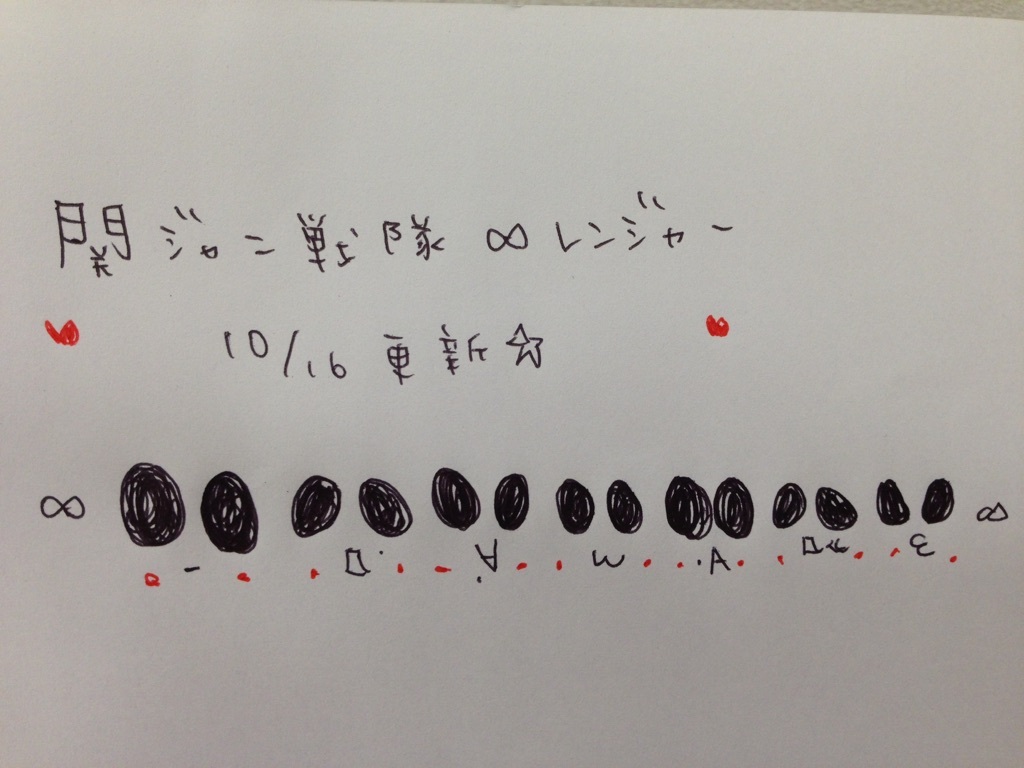 関ジャニ戦隊∞レンジャー
10/16 更新☆
∞ ∞